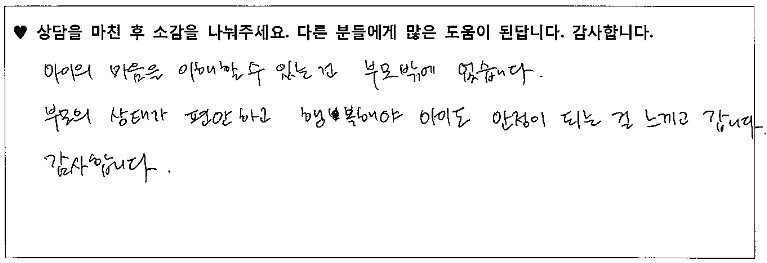 ♥ 상담을 마친 후 소감을 나눠주세요. 다른 분들에게 많은 도움이 된답니다. 감사합니다.
아이의 마음을 이해할 수 있는건 부모밖에 없습니다.
부모의 상태가 편안하고 행복해야 아이도 안정이 되는 걸 느끼고 갑니다.
감사합니다.